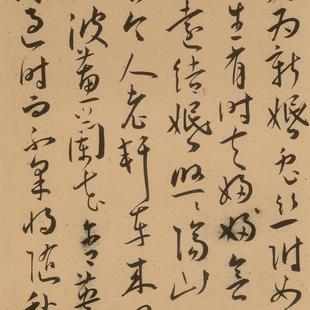 為新婚兔絲附女
生有時夫婦婦會
遠結婚悠悠隔山
令人老軒車來
彼蕙蘭花含英
過時而不采將隨秋